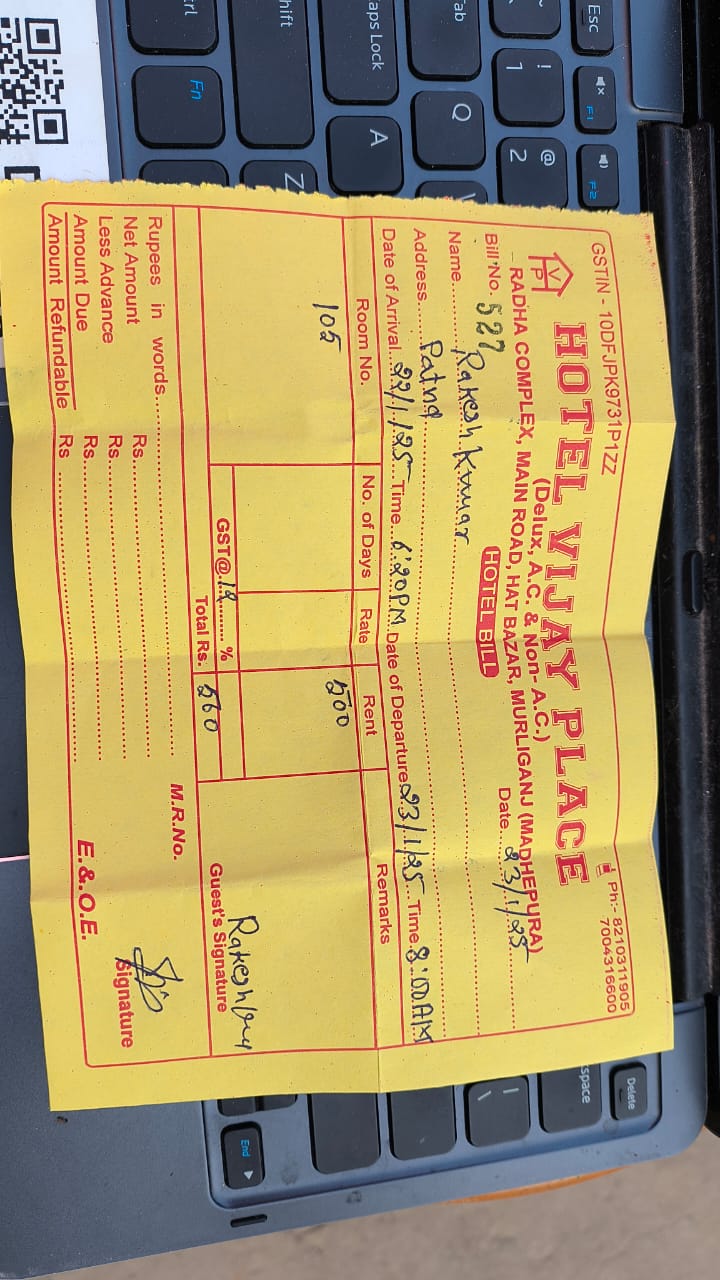 GSTIN - 10DFJPK9731P1ZZ
Ph:- 8210311905
7004316600
VP
HOTEL VIJAY PLACE
(Delux, A.C. & Non- A.C.)
RADHA COMPLEX, MAIN ROAD, HAT BAZAR, MURLIGANJ (MADHEPURA)
Bill No. 527 HOTEL BILL Date 23/1/25
Name Rakesh Kumar
Address Patna
Date of Arrival 22/1/25 Time 6:20PM Date of Departure 23/1/25 Time 8:00AM
Room No. No. of Days Rate Rent Remarks
105 500
GST@ 12 %
Total Rs. 560
Rakesh
Guest's Signature
Rupees in words M.R.No.
Net Amount Rs.
Less Advance Rs.
Amount Due Rs.
Amount Refundable Rs
Signature
E.&.O.E.
Esc
F1
F2
~
!
1
@
2
Tab
Q
Caps Lock
A
Shift
Z
Ctrl
Fn
Delete
space
|
\
End